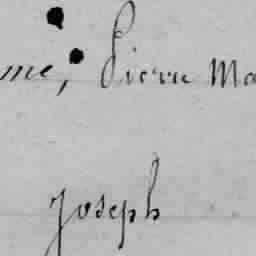 me, Pierre Ma
Joseph